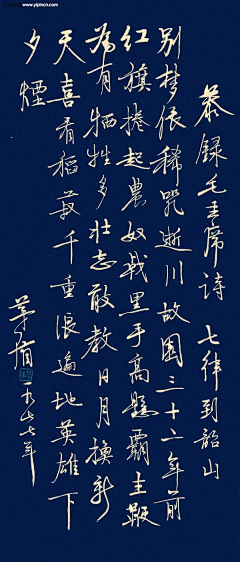 www.yiphcn.com
恭録毛主席诗 七律到韶山
别梦依稀咒逝川故園三十二年前
红旗捲起農奴戟黑手高懸霸主鞭
為有牺牲多壮志敢教日月換新
天喜看稻菽千重浪遍地英雄下
夕煙
茅盾 一九七七年